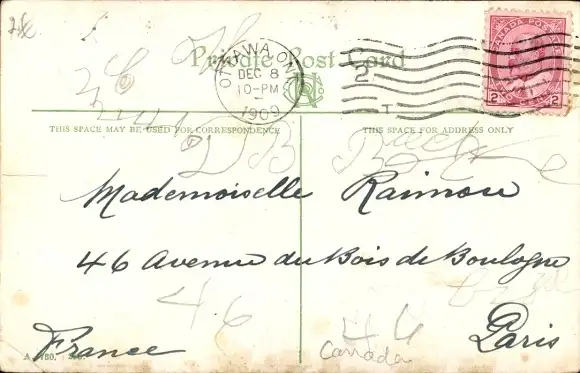 Private Post Card
OTTAWA, ONT.
DEC 8
10-PM
1909
2
T
CANADA POSTAGE
2 CENTS 2
THIS SPACE MAY BE USED FOR CORRESPONDENCE
THIS SPACE FOR ADDRESS ONLY
Mademoiselle Raimon
46 Avenue du Bois de Boulogne
46
46
Paris
France
Canada